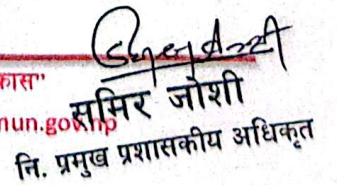 कास"
समिर जोशी
mun.gov.np
नि. प्रमुख प्रशासकीय अधिकृत